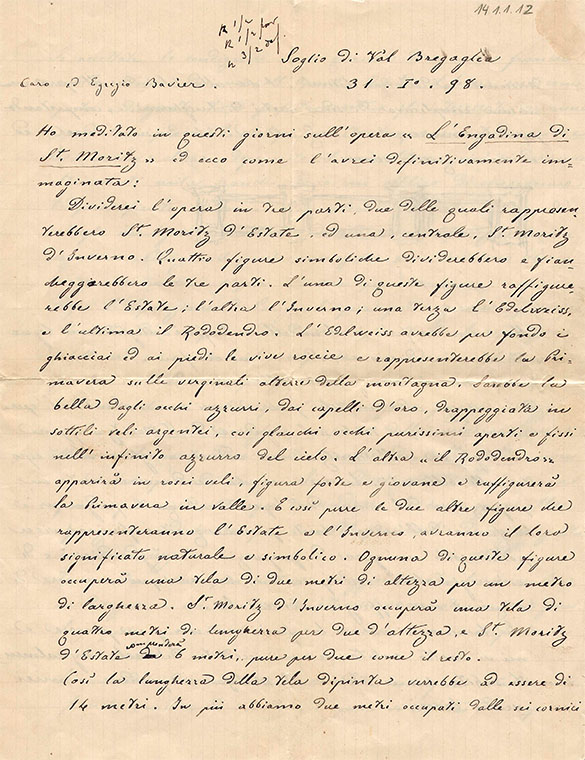 14.1.1.12
R 1/2
R 1/2 por
R 3/2
Soglio di Val Bregaglia
Caro ed Egregio Bavier. 31. Io. 98.
Ho meditato in questi giorni sull'opera « L'Engadina di
St. Moritz » ed ecco come l'avrei definitivamente im-
maginata:
Dividerei l'opera in tre parti, due delle quali rappresen-
terebbero St. Moritz d'Estate, ed una, centrale, St. Moritz
d'Inverno. Quattro figure simboliche dividerebbero e fian-
cheggerebbero le tre parti. L'una di queste figure raffigure-
rebbe l'Estate; l'altra l'Inverno; una terza l'Edelweiss,
e l'ultima il Rododendro. L'Edelweiss avrebbe per fondo i
ghiacciai ed ai piedi le vive roccie e rappresenterebbe la Pri-
mavera sulle verginali altezze della montagna. Sarebbe la
bella dagli occhi azzurri, dai capelli d'oro, drappeggiata in
sottili veli argentei, coi glauchi occhi purissimi aperti e fissi
nell'infinito azzurro del cielo. L'altra « il Rododendro »
apparirà in rosei veli, figura forte e giovane e raffigurerà
la Primavera in valle. E così pure le due altre figure che
rappresenteranno l'Estate e l'Inverno, avranno il loro
significato naturale e simbolico. Ognuna di queste figure
occuperà una tela di due metri di altezza per un metro
di larghezza. St. Moritz d'Inverno occuperà una tela di
quattro metri di lunghezza per due d'altezza, e St. Moritz
d'Estate 6 metri, pure per due come il resto.
Così la lunghezza della tela dipinta verrebbe ad essere di
14 metri. In più abbiamo due metri occupati dalle sei cornici